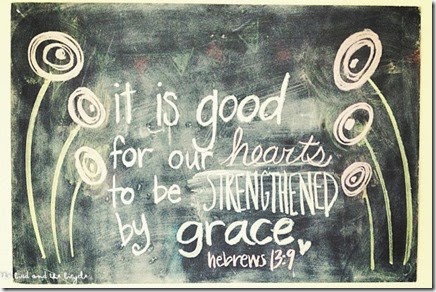 it is good
for our hearts
to be STRENGTHENED
by grace
hebrews 13:9
bird and the bicycle